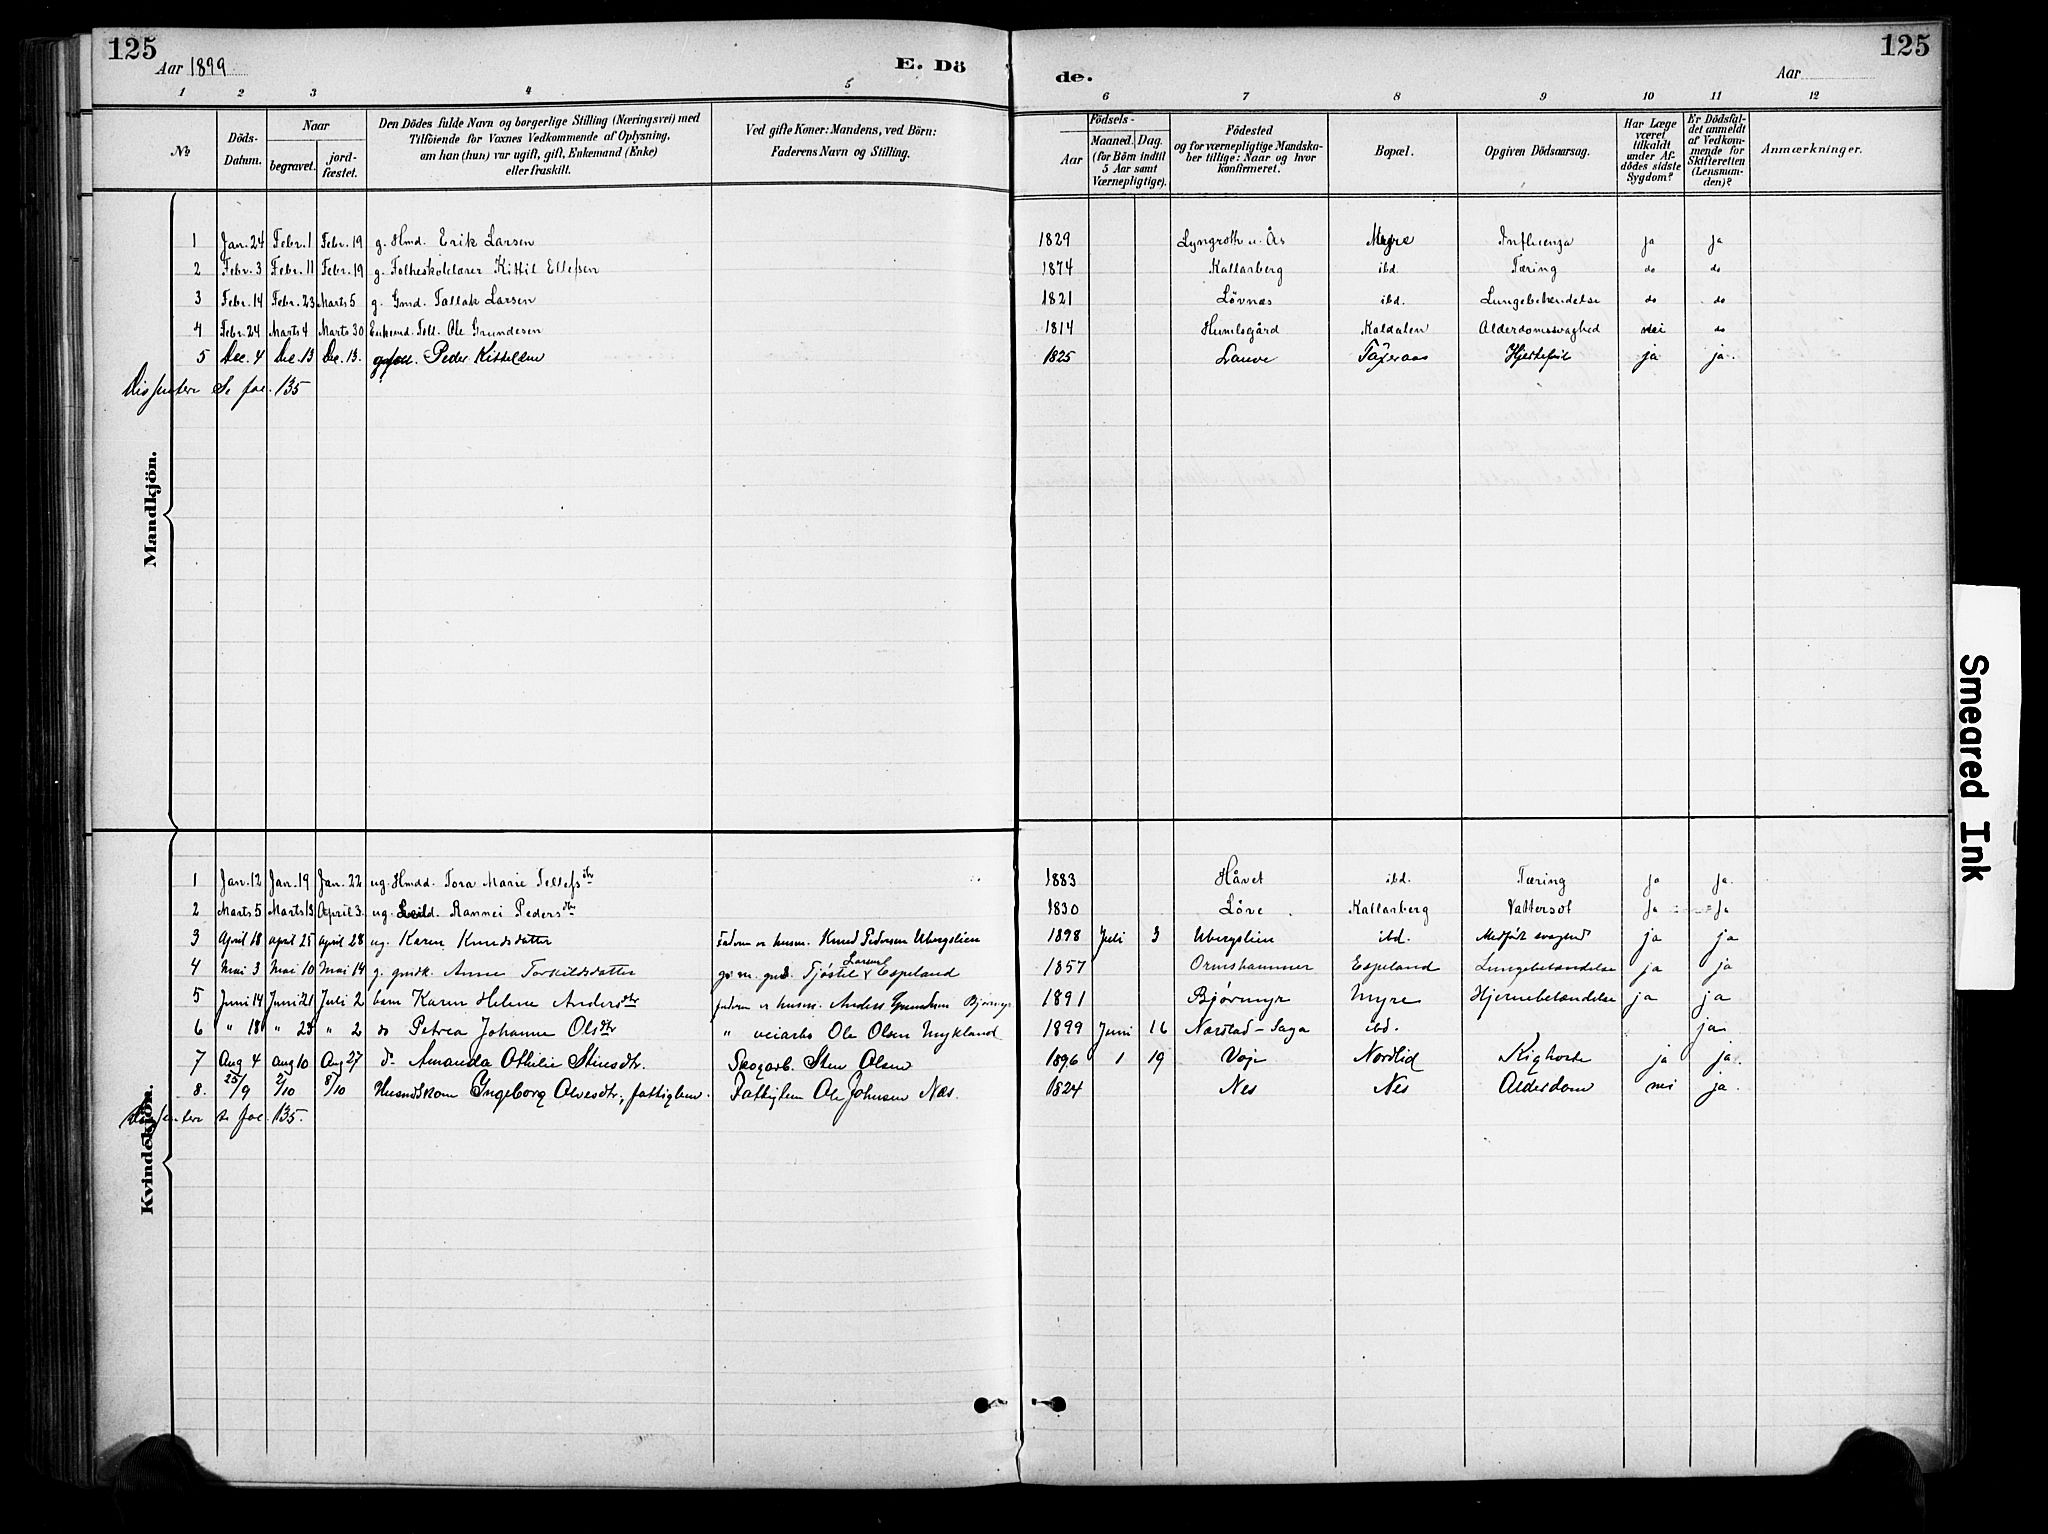 125
Aar 1899
E. Dö
de.
Aar
125
1 2 3 4 5 6 7 8 9 10 11 12
No
Döds-Datum.
Naar
begravet.
jord-fæstet.
Den Dödes fulde Navn og borgerlige Stilling (Næringsvei) med
Tilföiende for Voxnes Vedkommende af Oplysning,
om han (hun) var ugift, gift, Enkemand (Enke)
eller fraskilt.
Ved gifte Koner: Mandens, ved Börn:
Faderens Navn og Stilling.
Födsels-
Aar
Maaned. Dag.
(for Börn indtil
5 Aar samt
Værnepligtige).
Födested
og for værnepligtige Mandska-
ber tillige: Naar og hvor
konfirmeret.
Bopæl.
Opgiven Dödsaarsag.
Har Læge
været
tilkaldt
under Af-
dödes sidste
Sygdom?
Er Dödsfal-
det anmeldt
af Vedkom-
mende for
Skifteretten
(Lensman-
den)?
Anmærkninger.
Mandkjön.
1 Jan. 24 Febr. 1 Febr. 19 g. Hmd. Erik Larsen 1829 Lyngroth u. Ås Myre Influenza ja ja
2 Febr. 3 Febr. 11 Febr. 19 g. Folkeskolelærer Kittil Ellefsen 1874 Kallarberg ibd. Tæring do do
3 Febr. 14 Febr. 23 Marts 5 g. Gmd. Tallak Larsen 1821 Lövnæs ibd. Lungebetændelse do do
4 Febr. 24 Marts 4 Marts 30 Enkemd. Ole Grundesen 1814 Humlegård Kaldalen Alderdomssvaghed nei do
5 Dec. 4 Dec. 13 Dec. 13. Peder Kittelsen 1825 Lauve Hjertefeil ja ja.
Dissentere Se fol. 135
Kvindekjön.
1 Jan. 12 Jan. 19 Jan. 22 ug. Hmdd. Tora Marie Tellefsdtr 1883 Håvet ibd. Tæring ja ja.
2 Marts 5 Marts 13 April 3. ug. Rannei Pedersdtr 1830 Löve Kallarberg Vattersot ja ja
3 April 18 april 25 april 28 ug. Karen Knudsdatter Faderen er husm. Knud Pedersen Ubergslien 1898 Juli 3 Ubergslien ibd. Medfødt svaghed ja ja
4 Mai 3 Mai 10 Mai 14 g. gmdk. Anne Torkildsdatter gmd. Tjøstel Larsen Espeland 1857 Ormshammer Espeland Lungebetændelse ja ja
5 Juni 14 Juni 21 Juli 2 barn Karen Helene Andersdtr faderen er husm. Anders Grundesen Bjørmyr 1891 Bjørmyr Myre Hjernebetændelse ja ja
6 " 18 " 23 " 2 do Petrea Johanne Olsdtr " veiarb. Ole Olsen Mykland 1899 Juni 16 Nordlad-Saga ibd. ja
7 Aug 4 aug 10 Aug 27 do Amanda Othilie Stensdtr. Skogarb. Sten Olsen 1896 1 19 Voje Nordlid Kighoste ja ja.
8. 25/9 2/10 8/10 Husmdskone Ingeborg Olvesdtr., fattiglem. Fattiglem Ole Johnsen Næs. 1824 Nes Nes Alderdom nei ja.
Dissentere se fol. 135.
Smeared Ink